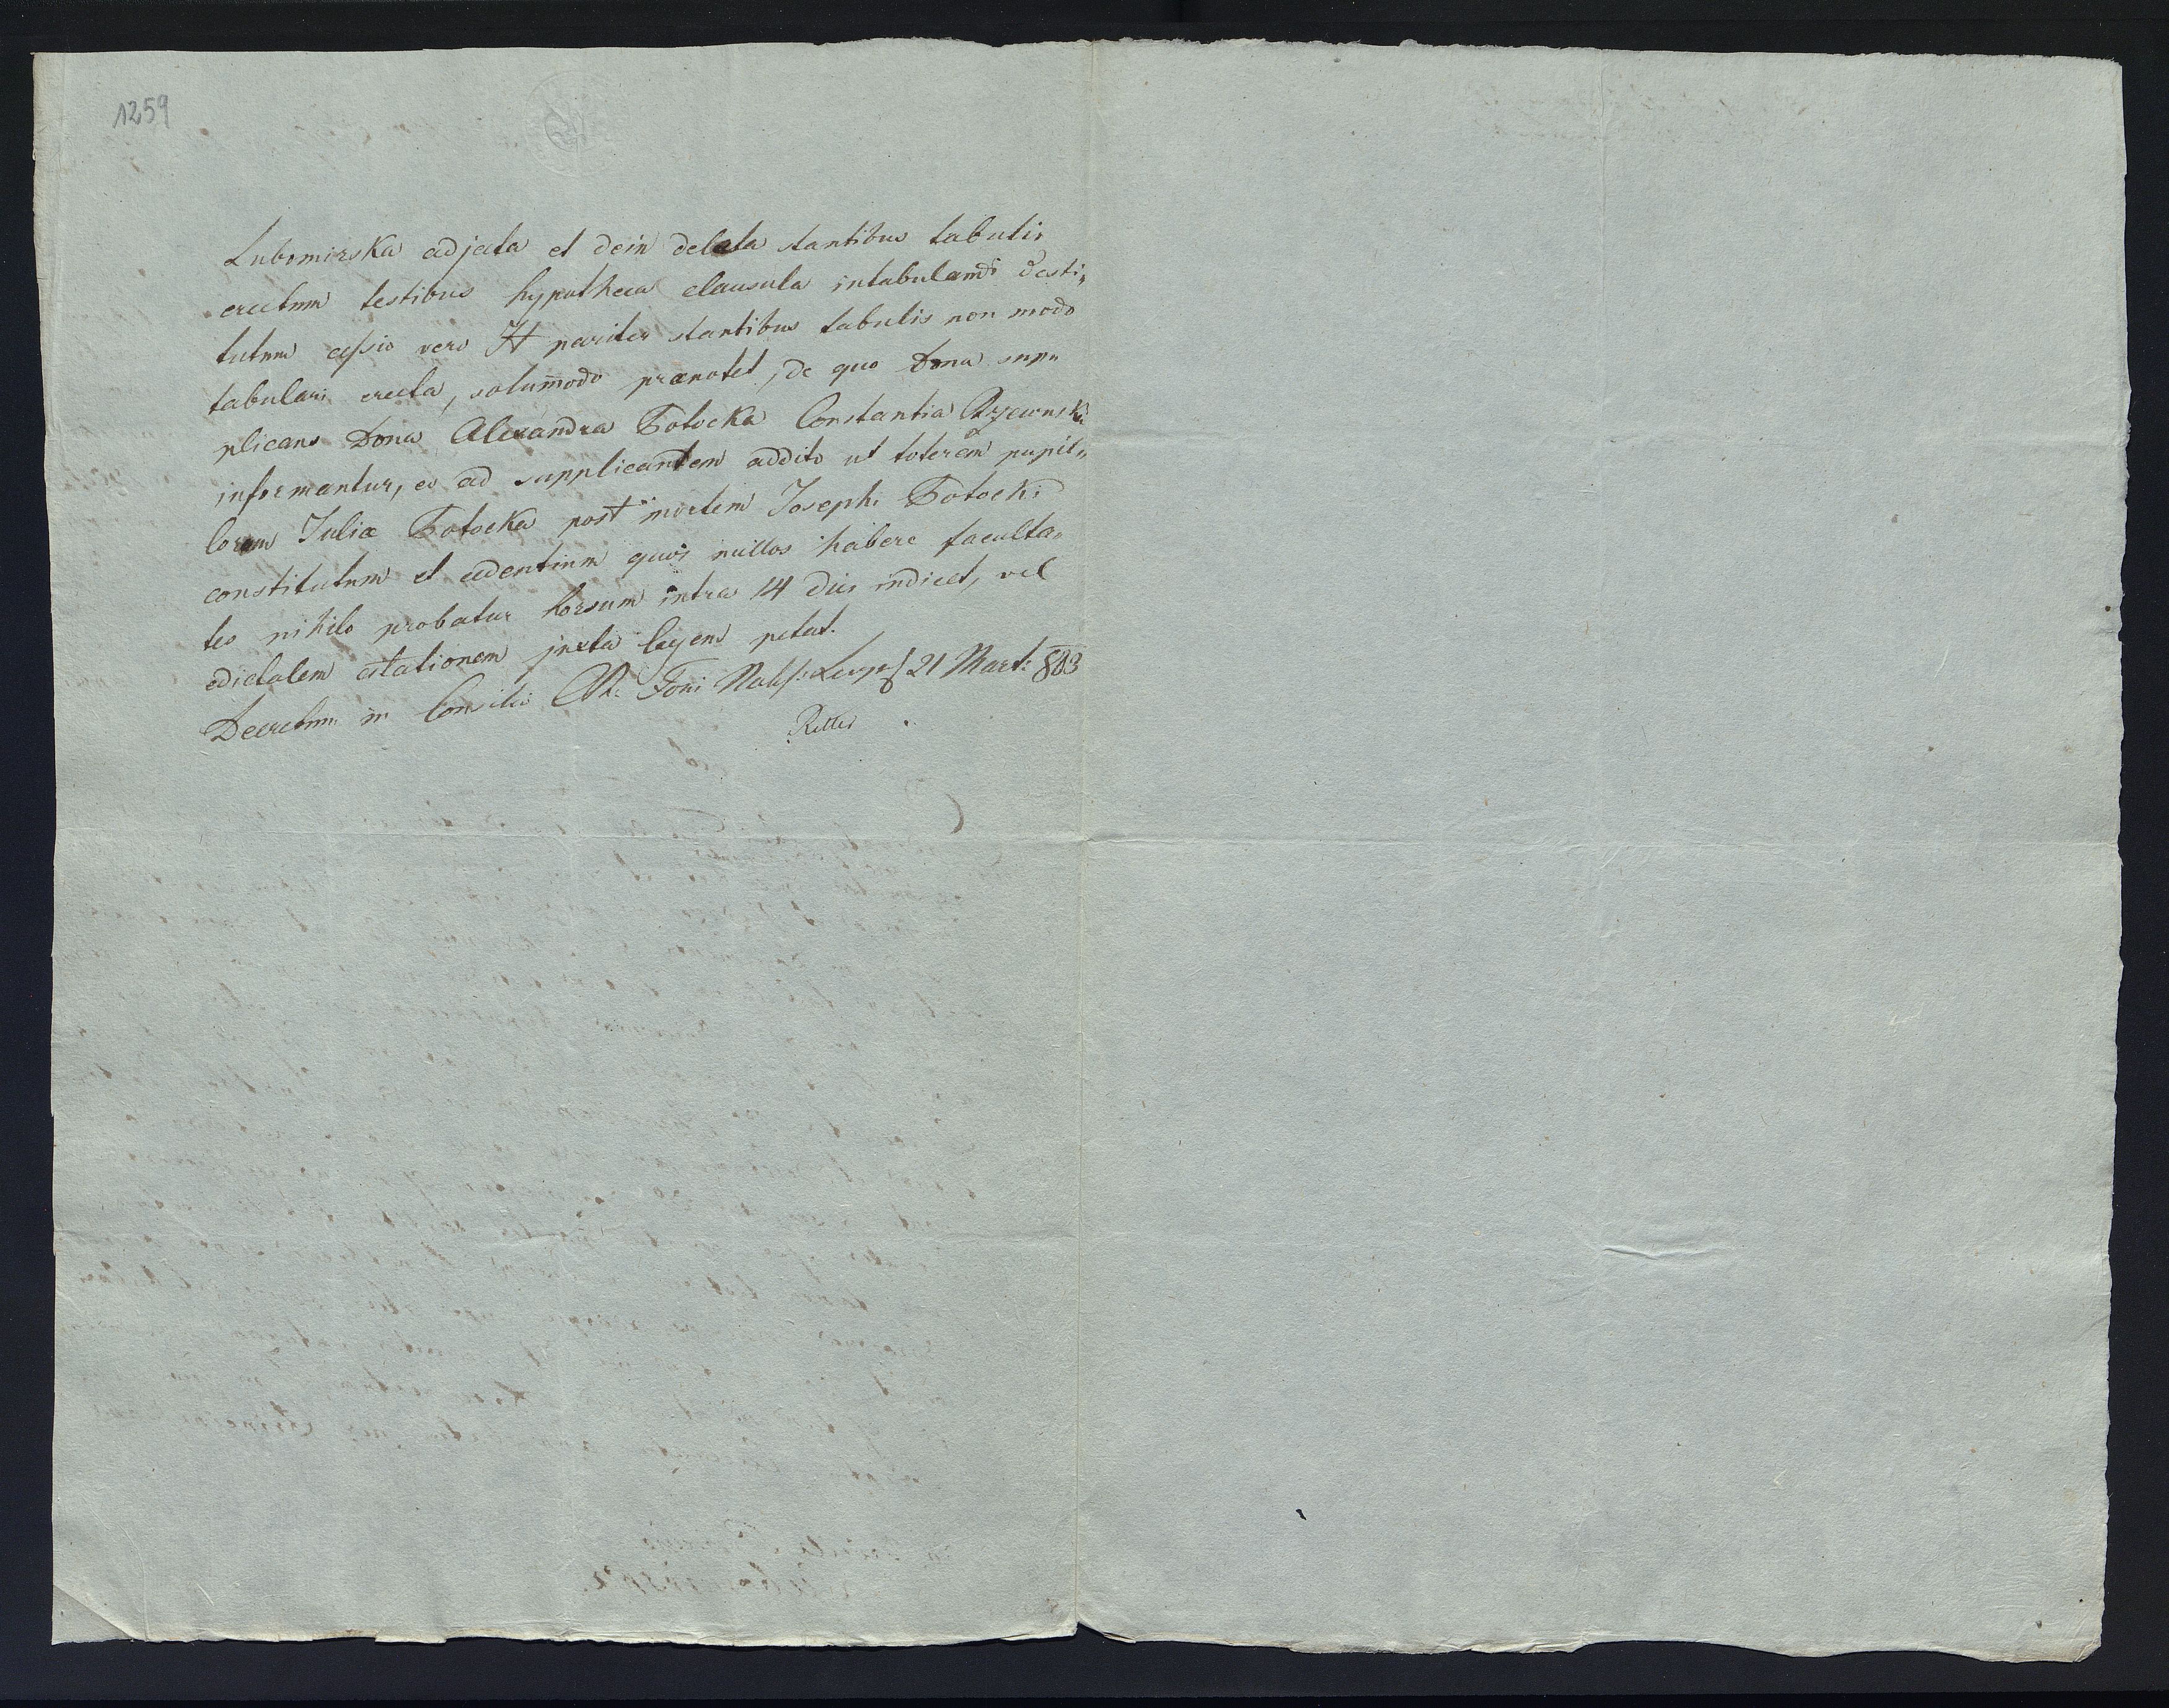 1259
Lubomirska adjecta et dein deleta stantibus tabulis
erectum testibus hypotheca clausula intabulandi desti„
tutum cessio vero H pariter stantibus tabulis non modo
tabulari erecta, solum̄odo prænotet, de quo Dona sup„
plicans Dona Alexandra Potocka Constantia Rzewuska
informantur, eo ad supplicantem addito ut tutorem pupil„
lorum Juliæ Potocka post mortem Josephi Potocki
constitutum et cedentium quos nullos habere faculta„
tes nihilo probatur horsum intra 14 dies indicet, vel
edictalem citationem juxta legem petat.
Decretum in Consilio CR. Fori Nob. 21 Mart: 803
Ritter